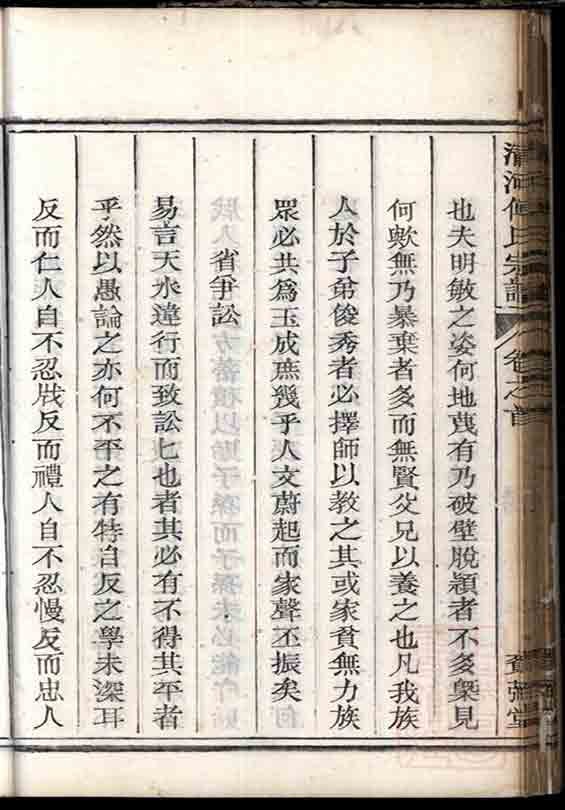 清河何氏宗譜
卷之首
也夫明敏之姿何地蔑有乃破壁脫穎者不多槩見
何歟無乃暴棄者多而無賢父兄以養之也凡我族
人於子弟俊秀者必擇師以教之其或家貧無力族
眾必共爲玉成庶幾乎人文蔚起而家聲丕振矣
省爭訟
易言天水違行而致訟訟也者其必有不得其平者
乎然以愚論之亦何不平之有特自反之學未深耳
反而仁人自不忍戕反而禮人自不忍慢反而忠人